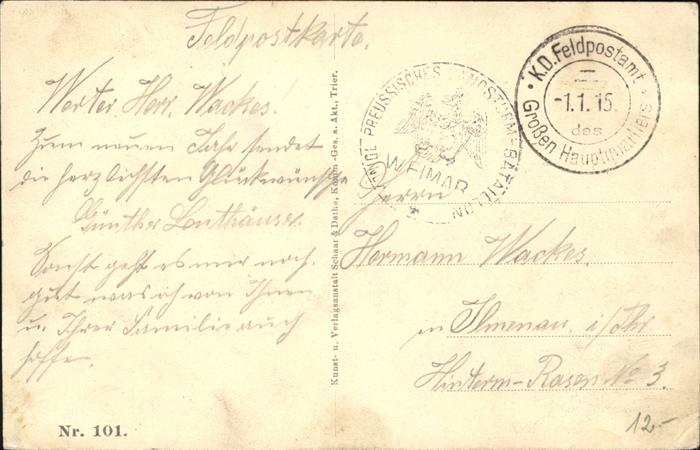 Feldpostkarte.
Werter Herr Wackes!
Zum neuen Jahr sendet
die herzlichsten Glückwünsche
Günther
Sonst geht es mir noch
gut was ich von Ihnen
u. Ihrer Familie auch
hoffe.
Nr. 101.
Kunst- u. Verlagsanstalt Schaar & Dathe, Komm.-Ges. a. Akt., Trier.
KÖNIGL PREUSSISCHES LANDSTURM-BATAILLON
WEIMAR
K.D. Feldpostamt
-1.1.15.
des
Großen Hauptquartiers
Herrn
Hermann Wackes.
in Ilmenau i/Thr.
Hinterm-Rasen No 3.
12-